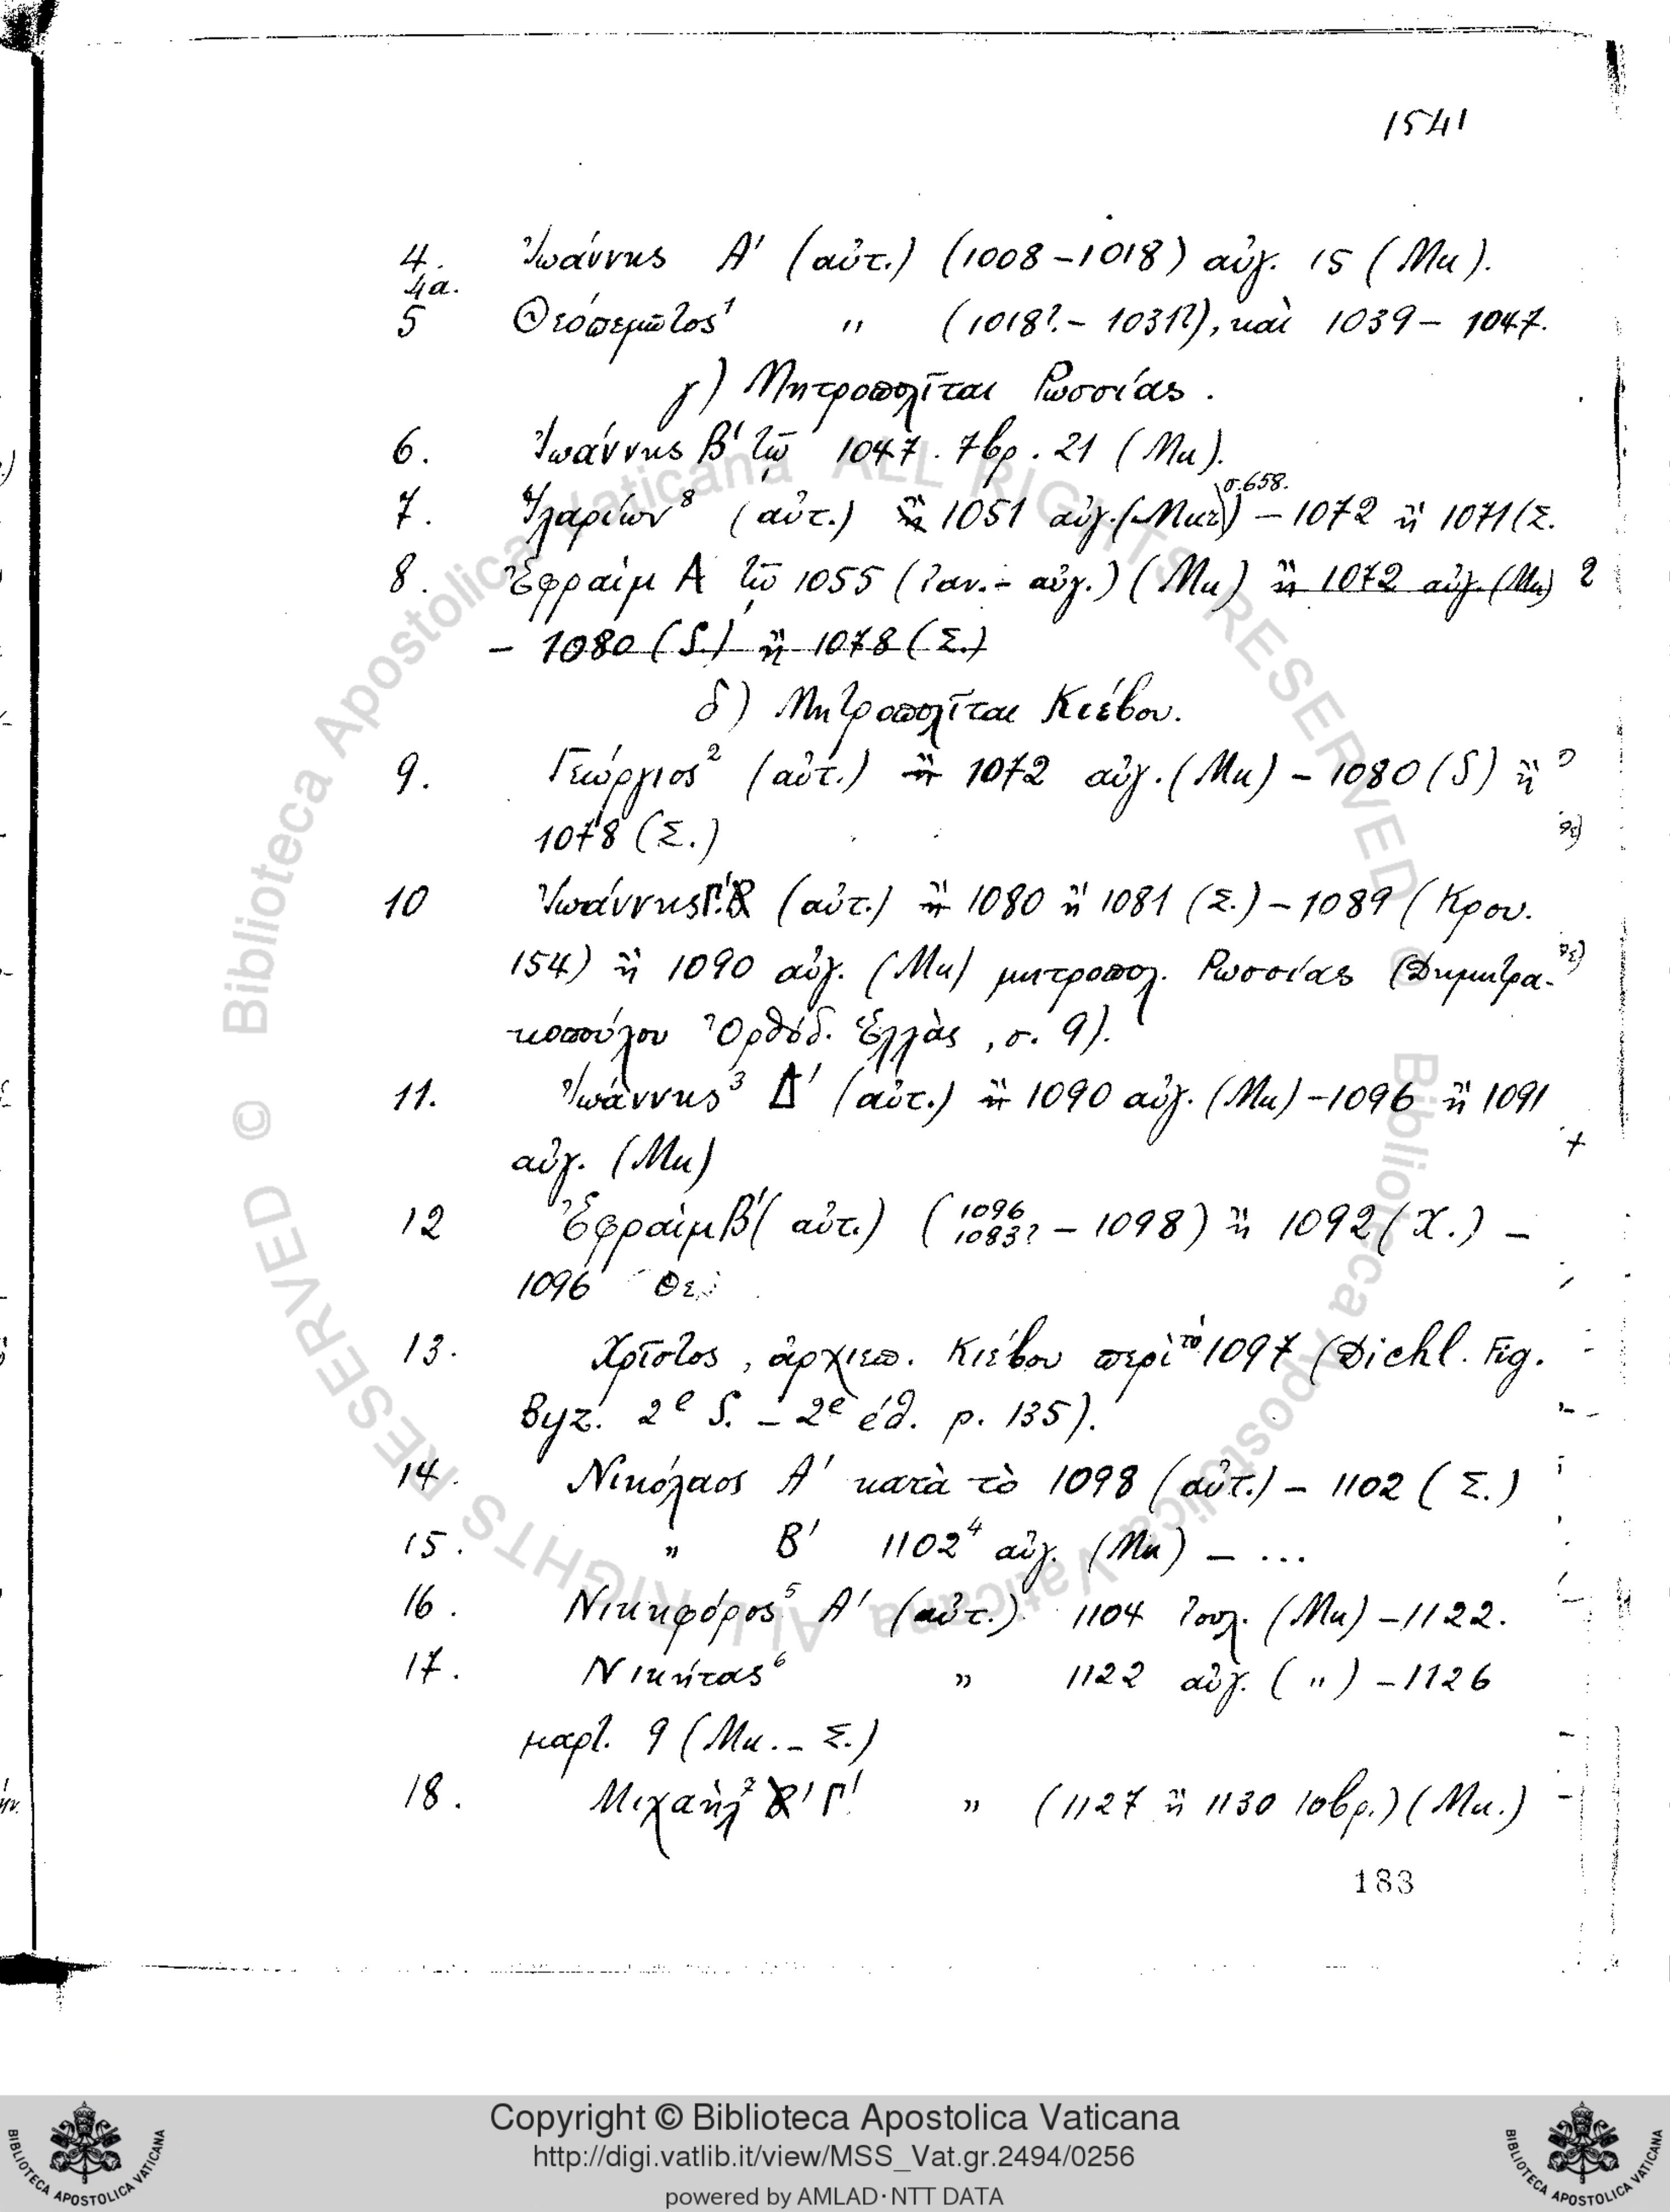 1541
4. Ἰωάννης Α' (αὐτ.) (1008-1018) αὐγ. 15 (Μκ).
4α.
5 Θεόπεμπτος¹ " (1018?.- 1031?), καὶ 1039 - 1047.
γ) Μητροπολῖται Ρωσσίας.
6. Ἰωάννης Β' τῷ 1047. 7βρ. 21 (Μκ).
σ.658.
7. Ἱλαρίων⁸ (αὐτ.) ἢ 1051 αὐγ. (Μκ) - 1072 ἢ 1071 (Σ.
8. Ἐφραίμ Α τῷ 1055 (ἰαν.- αὐγ.) (Μκ) ἢ 1072 αὐγ. (Μκ) 2
- 1080 (S.) ἢ 1078 (Σ.)
δ) Μητροπολῖται Κιέβου.
9. Γεώργιος² (αὐτ.) ἢ 1072 αὐγ. (Μκ) - 1080 (S) ἢ
1078 (Σ.)
10 Ἰωάννης Γ' (αὐτ.) ἢ 1080 ἢ 1081 (Σ.) - 1089 (Κρου.
154) ἢ 1090 αὐγ. (Μκ) μητροπολ. Ρωσσίας (Δημητρα-
κοπούλου Ὀρθόδ. Ἑλλὰς, σ. 9).
11. Ἰωάννης³ Δ' (αὐτ.) ἢ 1090 αὐγ. (Μκ) - 1096 ἢ 1091
αὐγ. (Μκ)
12 Ἐφραίμ Β' (αὐτ.) (1096 1083? - 1098) ἢ 1092 (Χ.) -
1096
13. Χρῖστος, ἀρχιεπ. Κιέβου περὶ τὸ 1097 (Diehl. Fig.
Byz. 2e S. - 2e éd. p. 135).
14. Νικόλαος Α' κατὰ τὸ 1098 (αὐτ.) - 1102 (Σ.)
15. " Β' 1102⁴ αὐγ. (Μκ) - ...
16. Νικηφόρος⁵ Α' (αὐτ.) 1104 ἰουλ. (Μκ) - 1122.
17. Νικήτας⁶ " 1122 αὐγ. (") - 1126
μαρτ. 9 (Μκ. - Σ.)
18. Μιχαὴλ⁷ Β' Γ' " (1127 ἢ 1130 10βρ.) (Μκ.)
183
© Biblioteca Apostolica Vaticana ALL RIGHTS RESERVED © Biblioteca Apostolica Vaticana ALL RIGHTS RESERVED
Copyright © Biblioteca Apostolica Vaticana
http://digi.vatlib.it/view/MSS_Vat.gr.2494/0256
powered by AMLAD·NTT DATA
BIBLIOTECA APOSTOLICA VATICANA
BIBLIOTECA APOSTOLICA VATICANA